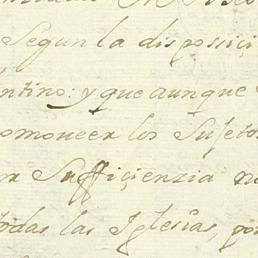 Segun la disposici
ntino: y que aunque
omoveer los Sujetos
or Sufficienzia no
todas las Iglesias, po